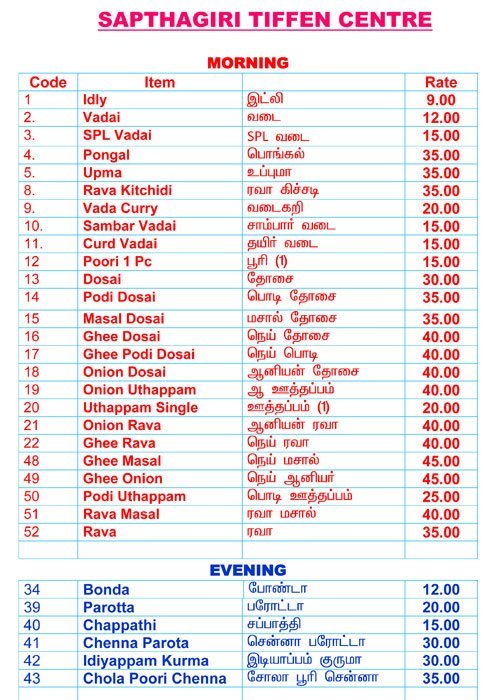 SAPTHAGIRI TIFFEN CENTRE
MORNING
Code Item Rate
1 Idly இட்லி 9.00
2. Vadai வடை 12.00
3. SPL Vadai SPL வடை 15.00
4. Pongal பொங்கல் 35.00
5. Upma உப்புமா 35.00
8. Rava Kitchidi ரவா கிச்சடி 35.00
9. Vada Curry வடைகறி 20.00
10. Sambar Vadai சாம்பார் வடை 15.00
11. Curd Vadai தயிர் வடை 15.00
12 Poori 1 Pc பூரி (1) 15.00
13 Dosai தோசை 30.00
14 Podi Dosai பொடி தோசை 35.00
15 Masal Dosai மசால் தோசை 35.00
16 Ghee Dosai நெய் தோசை 40.00
17 Ghee Podi Dosai நெய் பொடி 40.00
18 Onion Dosai ஆனியன் தோசை 40.00
19 Onion Uthappam ஆ ஊத்தப்பம் 40.00
20 Uthappam Single ஊத்தப்பம் (1) 20.00
21 Onion Rava ஆனியன் ரவா 40.00
22 Ghee Rava நெய் ரவா 40.00
48 Ghee Masal நெய் மசால் 45.00
49 Ghee Onion நெய் ஆனியர் 45.00
50 Podi Uthappam பொடி ஊத்தப்பம் 25.00
51 Rava Masal ரவா மசால் 40.00
52 Rava ரவா 35.00
EVENING
34 Bonda போண்டா 12.00
39 Parotta பரோட்டா 20.00
40 Chappathi சப்பாத்தி 15.00
41 Chenna Parota சென்னா பரோட்டா 30.00
42 Idiyappam Kurma இடியாப்பம் குருமா 30.00
43 Chola Poori Chenna சோலா பூரி சென்னா 35.00